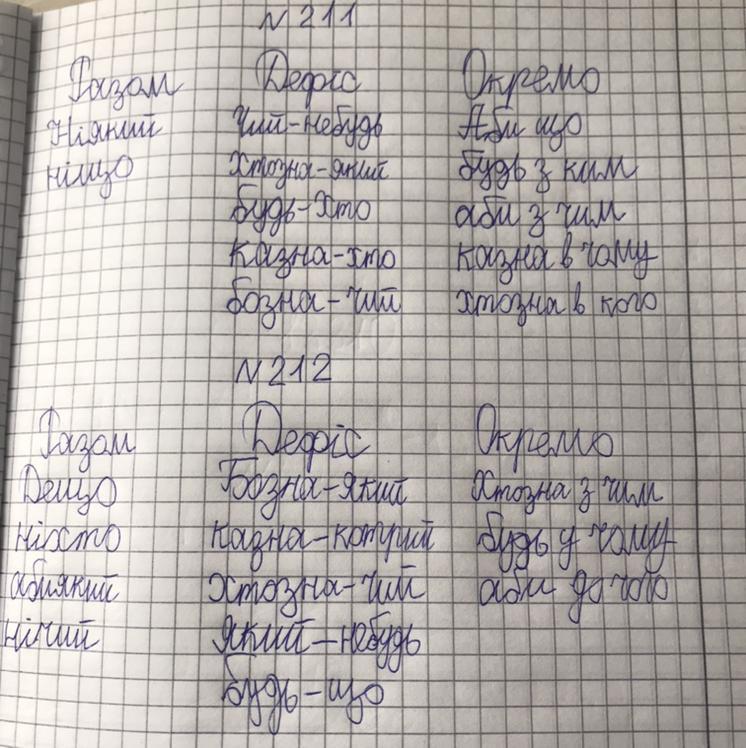 N 211
Разом Дефіс Окремо
Ніякий Чий-небудь Аби що
ніщо хтозна-який будь з ким
будь-хто аби з чим
казна-хто казна в чому
бозна-чий хтозна в кого
N 212
Разом Дефіс Окремо
Дещо Бозна-який Хтозна з чим
ніхто казна-котрий будь у чому
абиякий хтозна-чий аби до чого
нічий який-небудь
будь-що